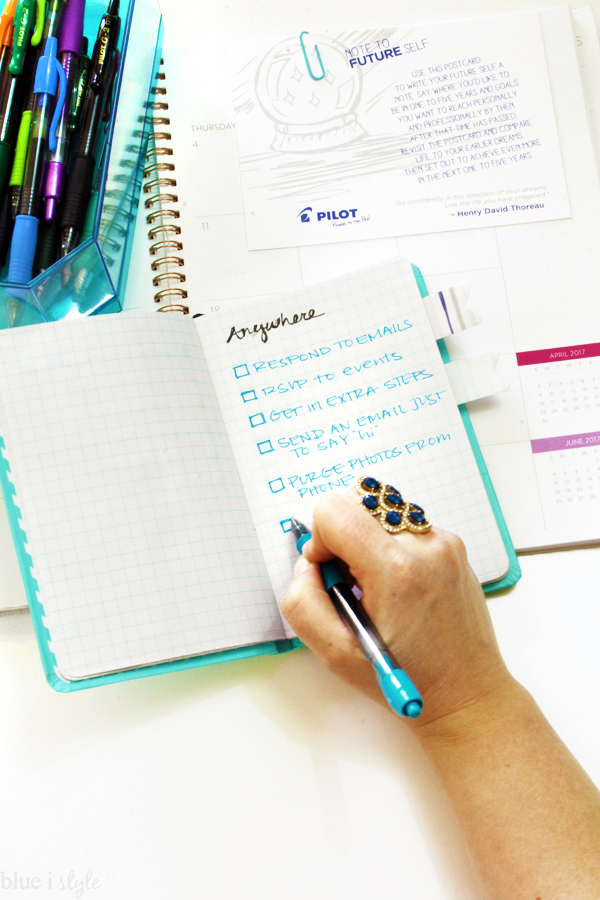 PILOT G-2
PILOT G-2
NOTE TO
FUTURE SELF
USE THIS POSTCARD
TO WRITE YOUR FUTURE SELF A
NOTE. SAY WHERE YOU'D LIKE TO
BE IN ONE TO FIVE YEARS AND GOALS
YOU WANT TO REACH PERSONALLY
AND PROFESSIONALLY BY THEN.
AFTER THAT TIME HAS PASSED,
REVISIT THE POSTCARD AND COMPARE
LIFE TO YOUR EARLIER DREAMS.
THEN SET OUT TO ACHIEVE EVEN MORE
IN THE NEXT ONE TO FIVE YEARS.
"Go confidently in the direction of your dreams!
Live the life you have imagined."
- Henry David Thoreau
PILOT
Power to the Pen
THURSDAY
4
11
Anywhere
RESPOND TO EMAILS
RSVP to events
GET IN EXTRA STEPS
SEND AN EMAIL JUST
TO SAY "hi"
PURGE PHOTOS FROM
PHONE
APRIL 2017
JUNE 2017
blue i style